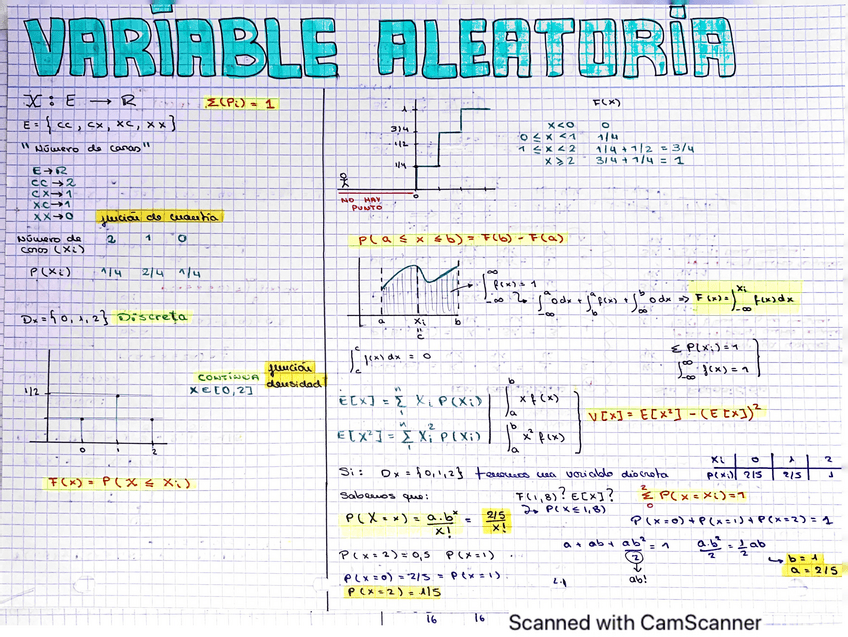 VARIABLE ALEATORIA
X : E → R
Σ(Pi) = 1
E = { CC, CX, XC, XX }
"Número de caras"
E→R
CC→2
CX→1
XC→1
XX→0
función de cuantía
Número de caras (Xi) 2 1 0
P(Xi) 1/4 2/4 1/4
Dx = {0,1,2} Discreta
1/2
0 1 2
CONTINUA
X ∈ [0,2]
función densidad
F(x) = P(X ≤ Xi)
1
3/4
1/2
1/4
0
NO HAY PUNTO
F(x)
x<0 0
0 ≤ x < 1 1/4
1 ≤ x < 2 1/4 + 1/2 = 3/4
x ≥ 2 3/4 + 1/4 = 1
P(a ≤ x ≤ b) = F(b) - F(a)
a xi b
c
∫_{-∞}^{∞} f(x) = 1
∫_{-∞}^{a} 0dx + ∫_{b}^{a} f(x) + ∫_{-∞}^{b} 0dx ⇒ F(x) = ∫_{-∞}^{xi} f(x)dx
∫_{c}^{c} f(x)dx = 0
Σ P(xi) = 1
∫_{-∞}^{∞} f(x) = 1
E[x] = Σ_{1}^{n} Xi P(Xi) ∫_{a}^{b} x f(x)
E[X²] = Σ_{1}^{n} Xi² P(Xi) ∫_{a}^{b} x² f(x)
V[x] = E[x²] - (E[x])²
Si: Dx = {0,1,2} tenemos una variable discreta
Xi 0 1 2
P(xi) 2/5 2/5 1
Sabemos que:
F(1,8)? E[x]?
P(x ≤ 1,8)
Σ_{0}^{2} P(x = xi) = 1
P(X=x) = a·b^x / x! = 2/5 / x!
P(x=0) + P(x=1) + P(x=2) = 1
a + ab + ab²/2 = 1
ab!
a·b²/2 = 1/2 ab
b = 1
a = 2/5
P(x=2) = 0,5 P(x=1)
P(x=0) = 2/5 = P(x=1)
P(x=2) = 1/5
16 16
Scanned with CamScanner